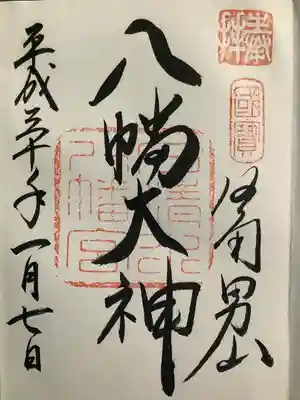 奉拝
國寶
洛南男山
八幡大神
石清水八幡宮
平成三十年一月七日